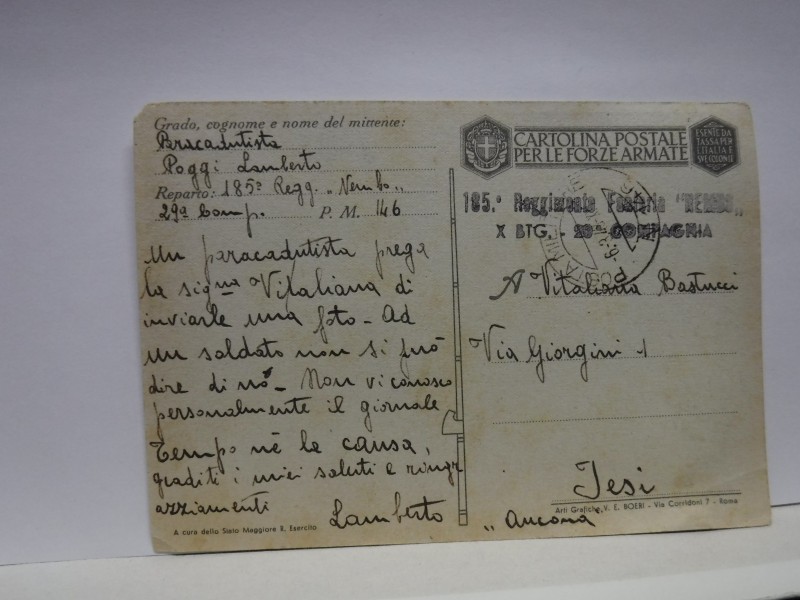 Grado, cognome e nome del mittente:
Pracadutista
Poggi Lamberto
Reparto: 185º Regg. "Nembo"
29ª Comp. P. M. 146
Un paracadutista prega
la sigⁿᵃ Vitaliana di
inviarle una foto - Ad
un soldato non si può
dire di nó - Non vi conosco
personalmente il giornale
Tempo nè la causa,
graditi i miei saluti e ringr
azziamenti
Lamberto
A cura dello Stato Maggiore R. Esercito
CARTOLINA POSTALE
PER LE FORZE ARMATE
ESENTE DA
TASSA PER
L'ITALIA E
185.º Reggimento Fanteria "NEMBO"
X BTG. - 29ª COMPAGNIA
A Vitaliana Bastucci
Via Giorgini 1
Jesi
"Ancona"
Arti Grafiche V. E. BOERI - Via Corridoni 7 - Roma